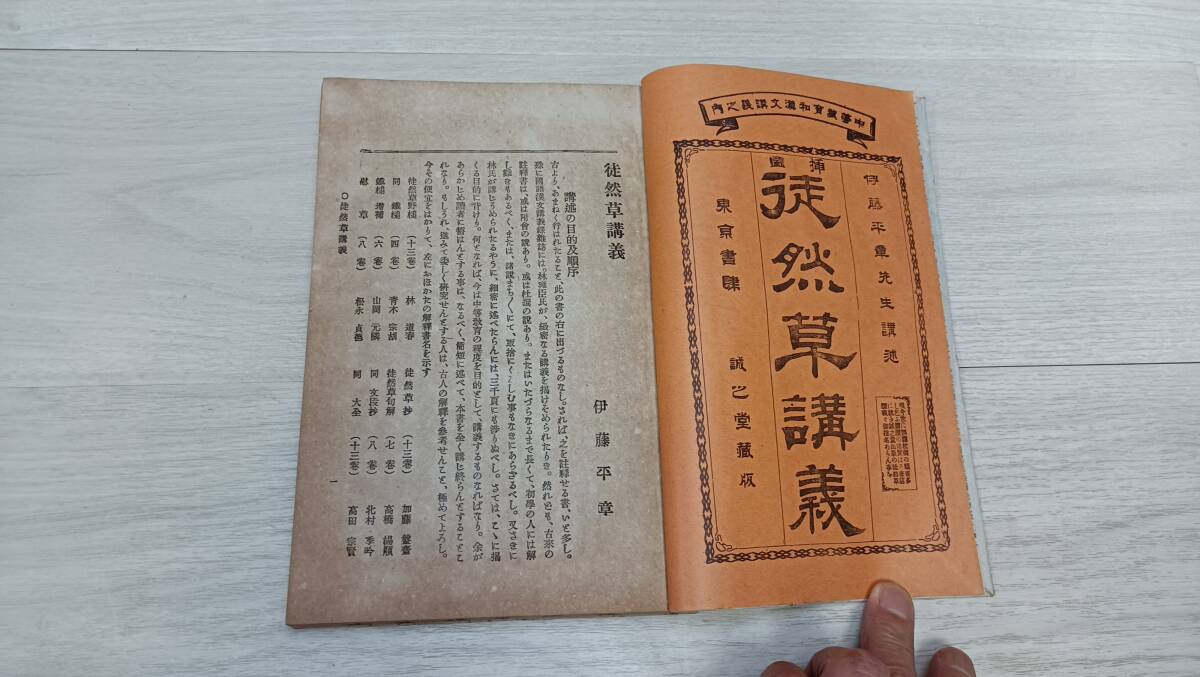 中等敎育和漢文講義之内
伊藤平章先生講述
挿圖
徒然草講義
東京書肆 誠之堂藏版
徒然草講義
伊藤平章
講述の目的及順序
古より、あまねく行はれたること、此の書の右に出づるものなし。されば、之を註釋せる書、いと多し。
殊に國語漢文講義錄雜誌には、林甕臣氏が、緻密なる講義を揭げそめられたりき。然れども、古來の
註釋書は、或は附會の說あり。或は杜撰の說あり。またはいたづらなるまで長くて、初學の人には解
し難きもあるべく、または、諸說まち〱にて、取捨にくるしむ事もなきにあらざるべし。又さきに
林氏が講じそめられたるやうに、細密に述べたらんには、三千頁にも涉りぬべし。さては、こゝに揭
くる目的に背けり。何となれば、今は中等敎育の程度を目的として、講義するものなればなり。余が
あらかじめ讀者に誓はんとする事は、なるべく、簡短に述べて、本書を全く講じ終らんとすることこ
れなり。もしうれ、進みて委しく硏究せんとする人は、古人の解釋を參考せんこと、極めてよろし。
今その便宜をはかりて、左におほかたの解釋書名を示す
徒然草野槌 (十三卷) 林 道春 徒然草抄 (十三卷) 加藤 盤齋
同 鐵槌 (四卷) 靑木 宗胡 徒然草句解 (七卷) 高橋
鐵槌 增補 (六卷) 山岡 元隣 同 文段抄 (八卷) 北村 季吟
慰草 (八卷) 松永 貞德 同 大全 (十三卷) 高田 宗賢
○徒然草講義
一